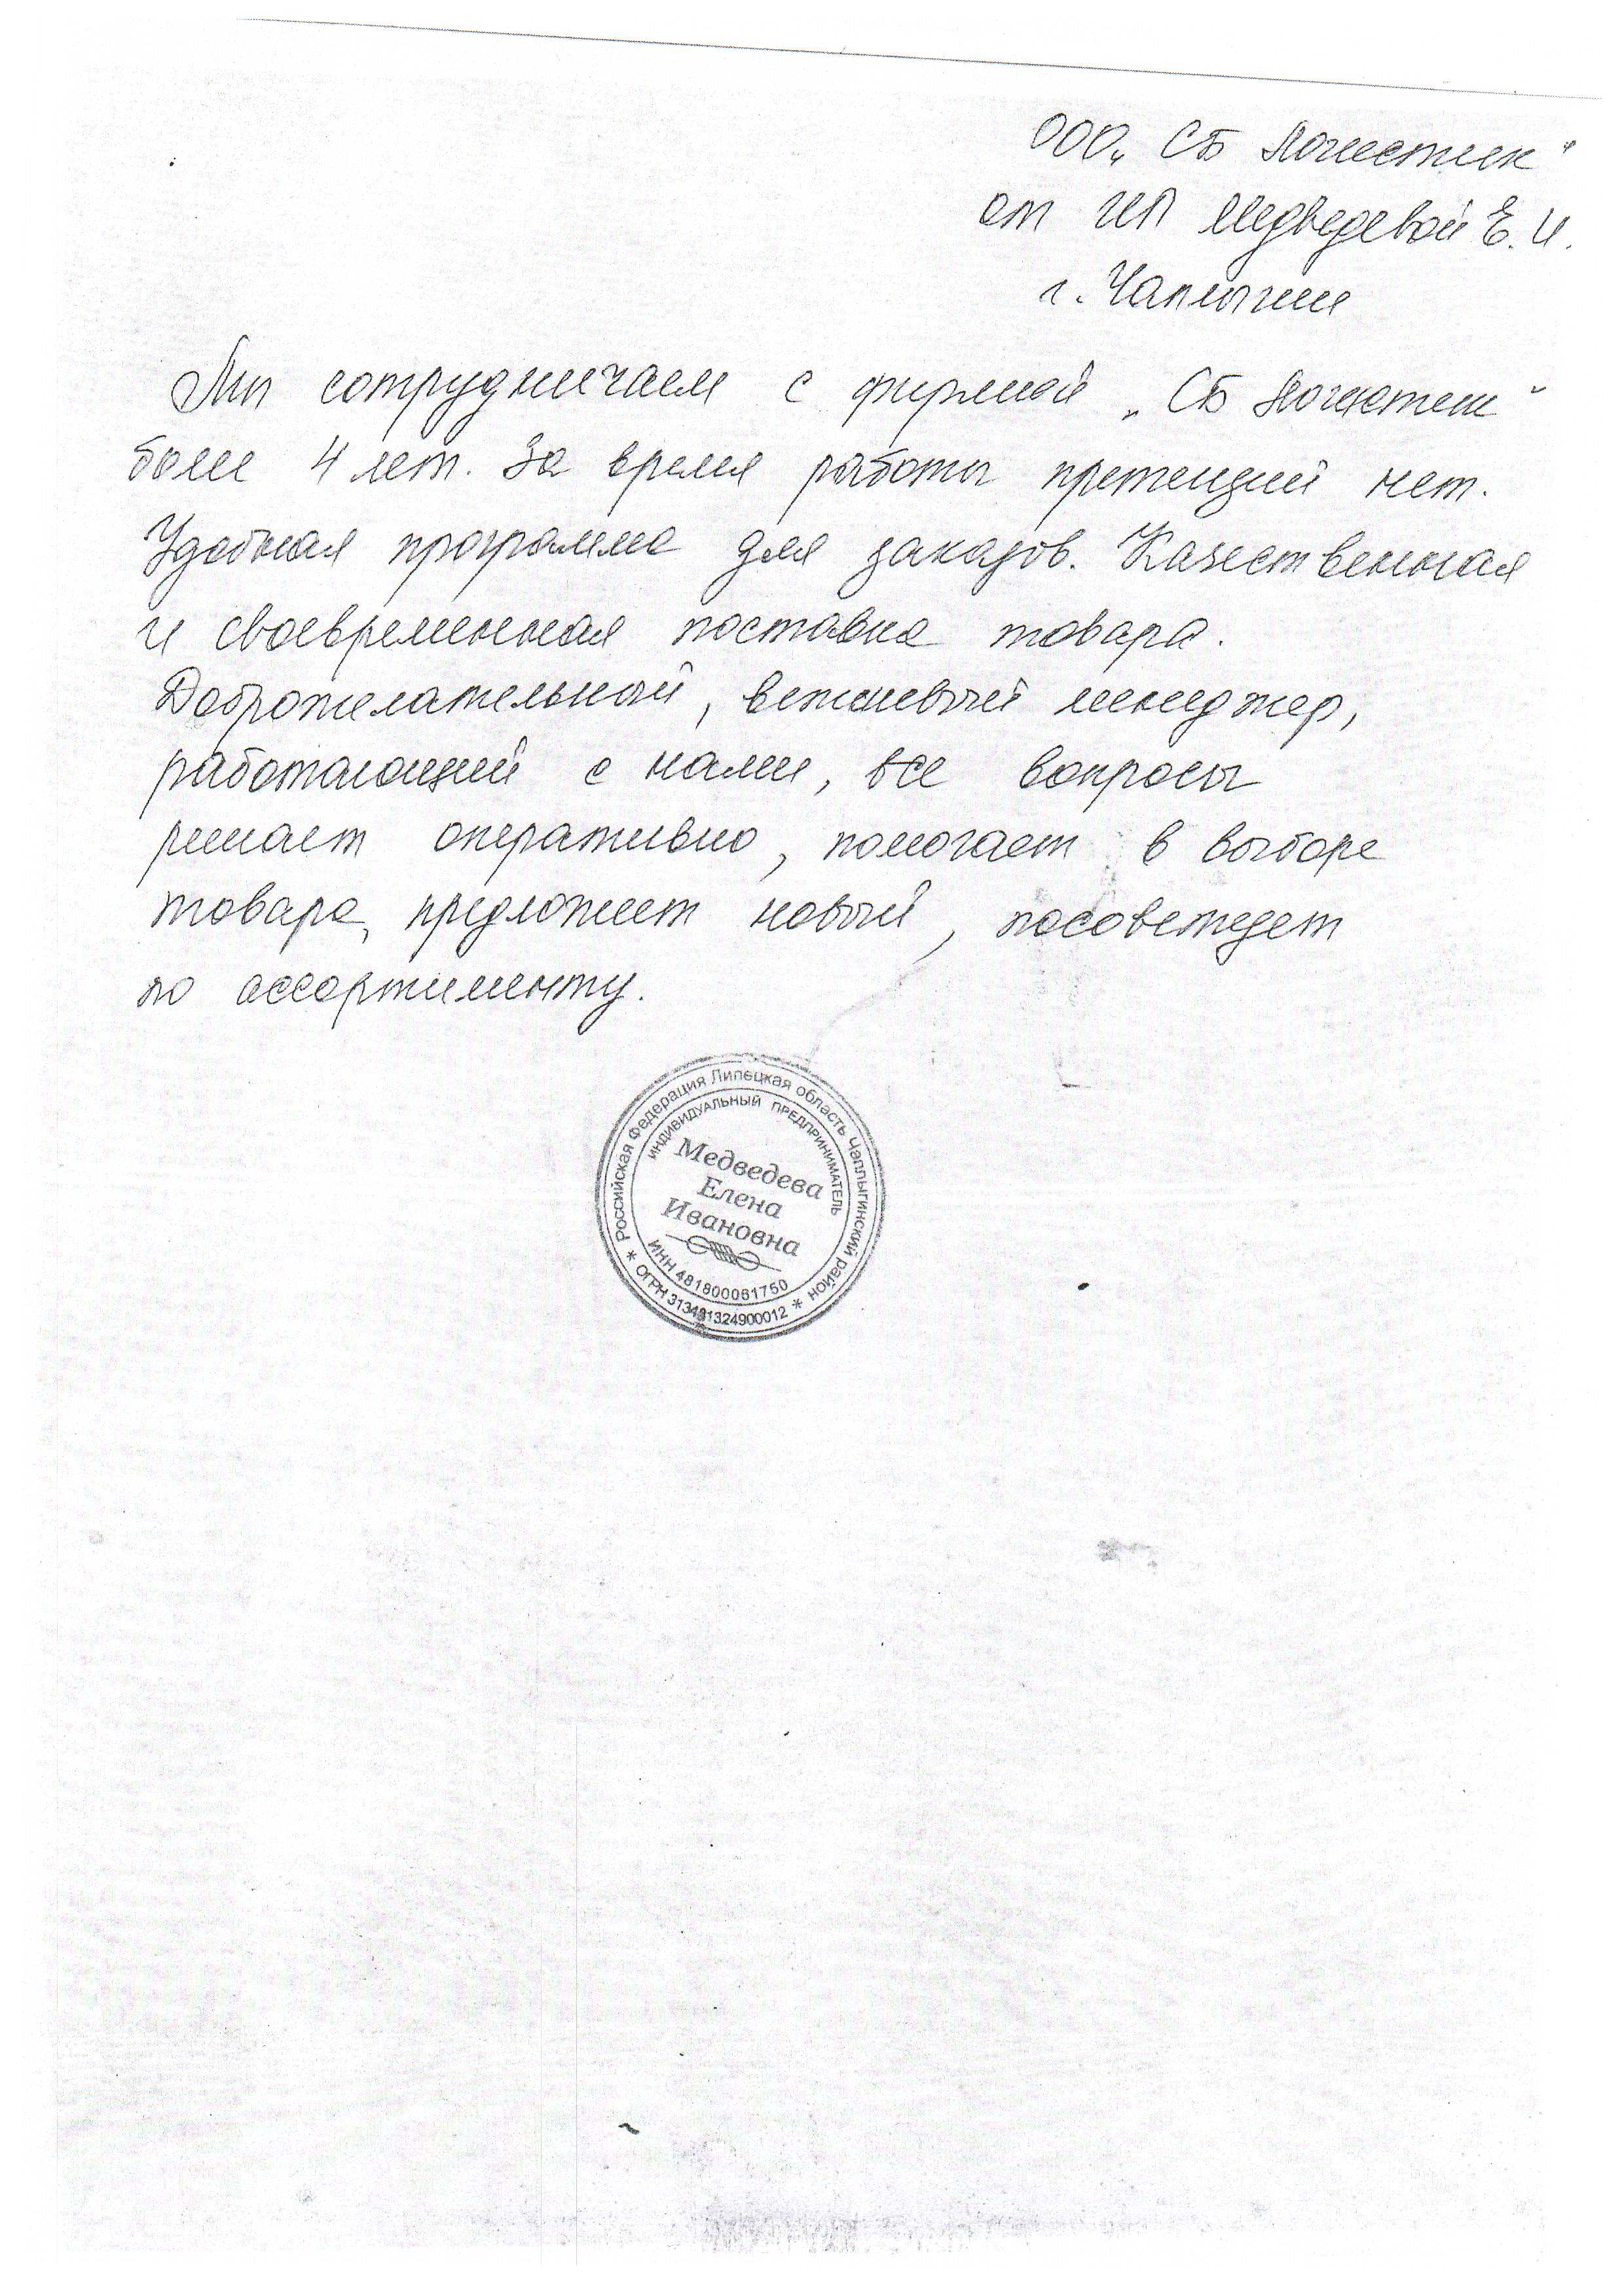 ООО „СБ Логистик"
от ИП Медведевой Е. И.
г. Чаплыгин
Мы сотрудничаем с фирмой „СБ Логистик"
более 4 лет. За время работы претензий нет.
Удобная программа для заказов. Качественная
и своевременная поставка товара.
Доброжелательный, вежливый менеджер,
работающий с нами, все вопросы
решает оперативно, помогает в выборе
товара, предложит новый, посоветует
по ассортименту.
Российская Федерация Липецкая область Чаплыгинский район
ИНДИВИДУАЛЬНЫЙ ПРЕДПРИНИМАТЕЛЬ
Медведева
Елена
Ивановна
ИНН 481800061750
* ОГРН 313481324900012 *